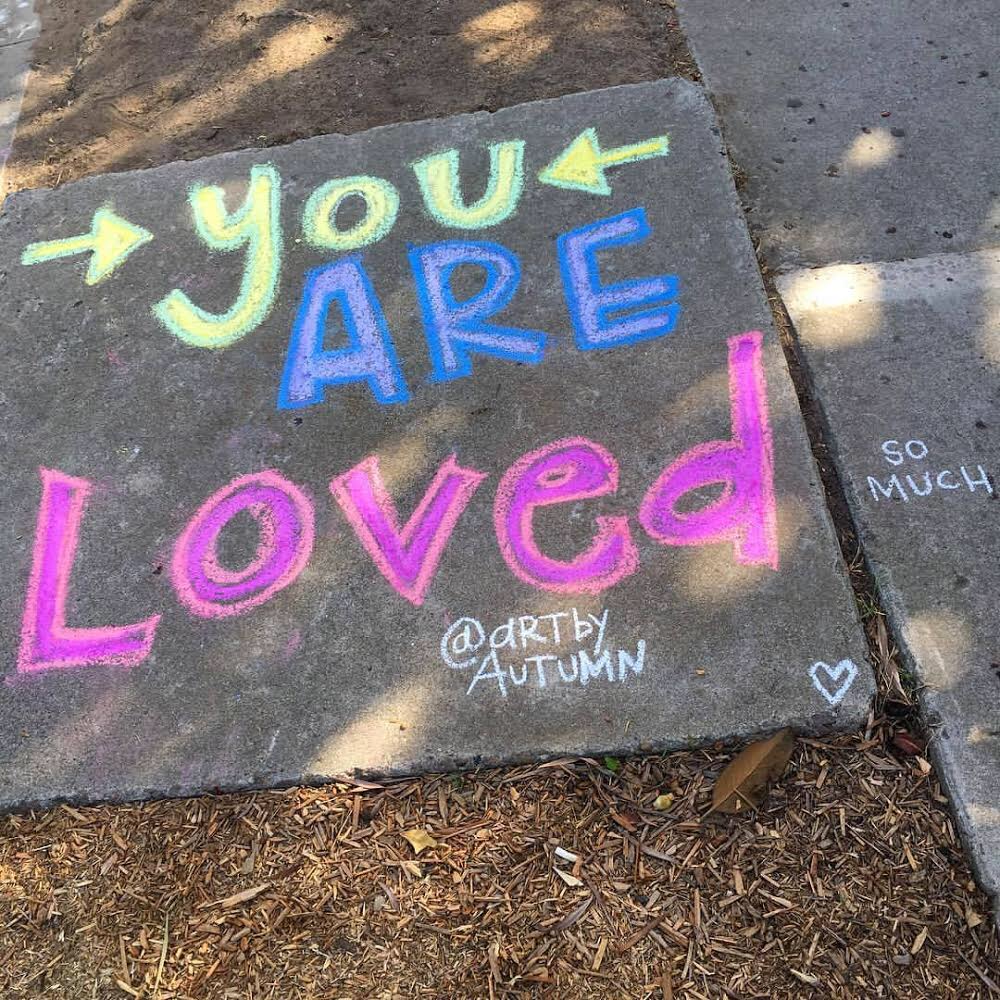 you
ARE
Loved
@aRTby
AUTUMN
SO
MUCH